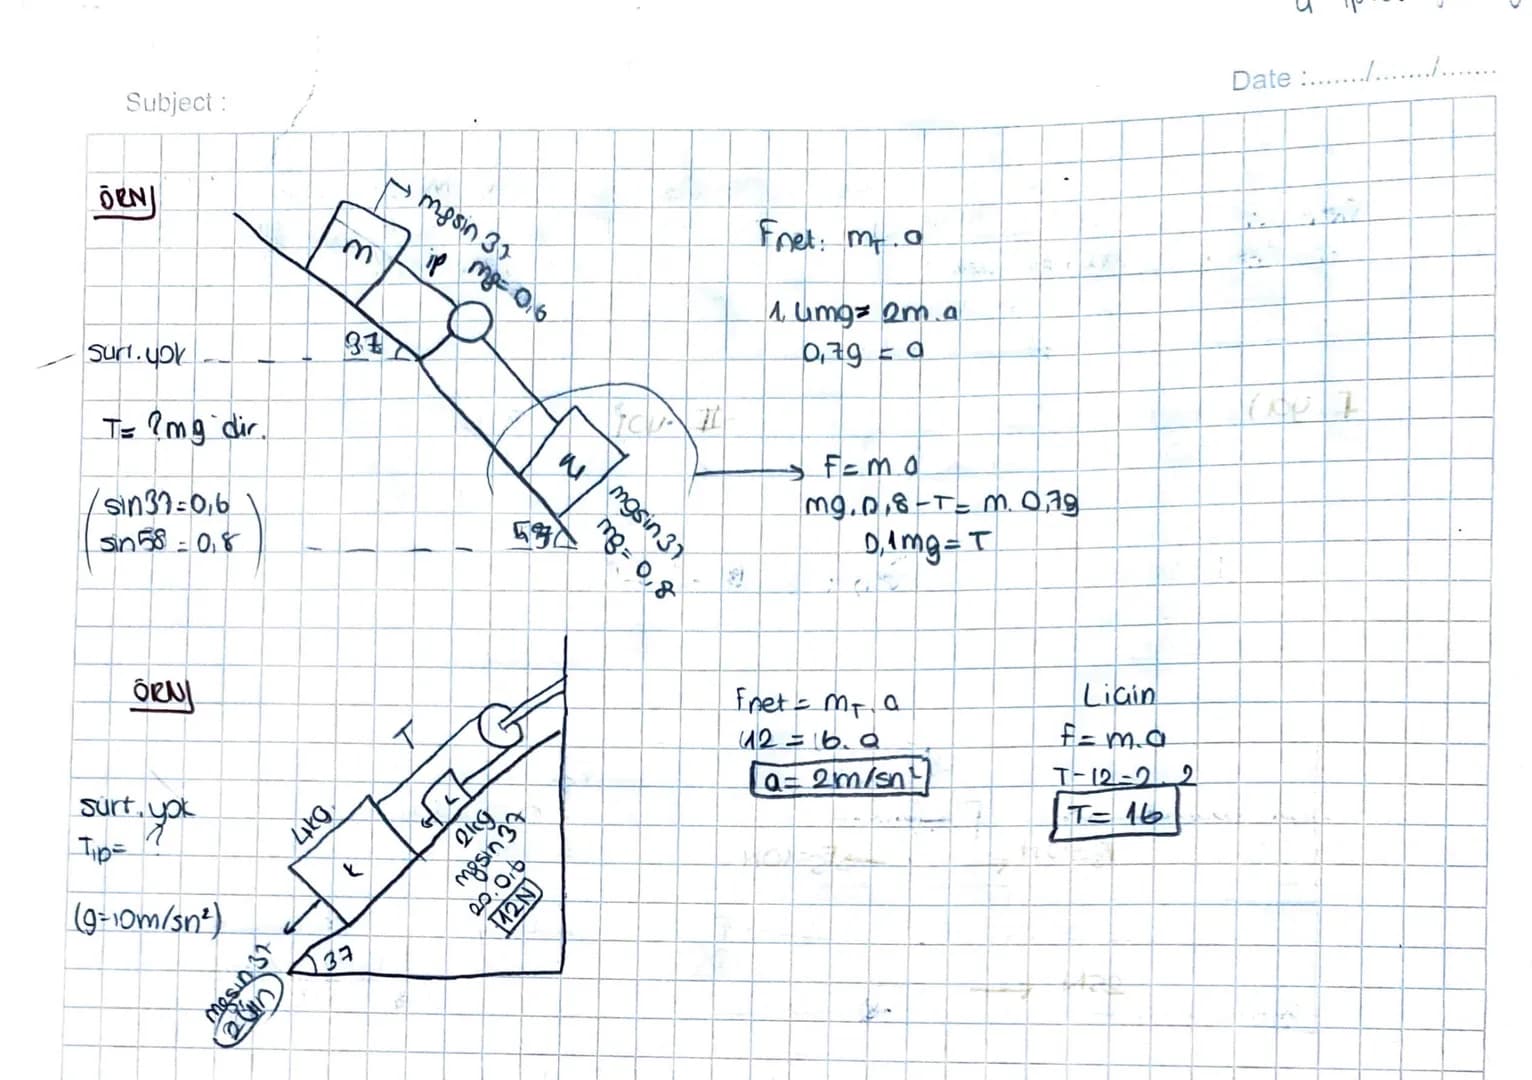 Date :......../......../........
Subject :
ÖRN
m
mgsin 37
ip mg= 0,6
Fnet: mT.a
1.4mg= 2m.a
0,7g = a
37
sürt.yok
T= ?mg dir.
F=m.a
mg.0,8-T= m. 0,7g
0,1mg=T
(sin37=0,6
sin58=0,8)
mgsin37
mg=0,8
ÖRN
T
Fnet = mT.a
12 = 6.a
a= 2m/sn²
L için
F=m.a
T-12=2.2
T= 16
sürt.yok
Tip= ?
(g=10m/sn²)
4kg
K
L
2kg
mgsin37
20.0,6
12N
37
mgsin37
24N